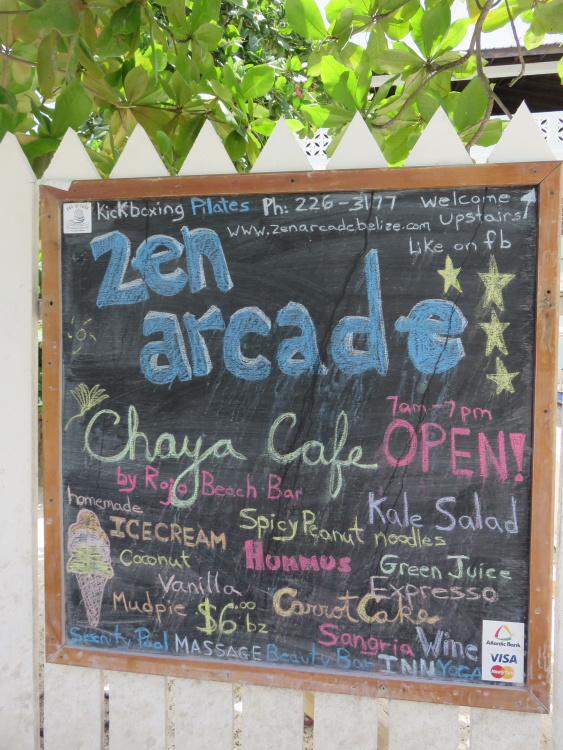 Kickboxing Pilates Ph: 226-3177 welcome
upstairs
www.zenarcadebelize.com
Like on fb
zen
arcade
7am-7pm
Chaya Cafe OPEN!
by Rojo Beach Bar
homemade
Kale Salad
ICECREAM
Spicy Peanut noodles
Coconut
HUMMUS
Green Juice
Vanilla
Expresso
Mudpie
$6.00 bz
Carrot Cake
Sangria
Wine
Serenity Pool MASSAGE Beauty Bar INN YOGA
Atlantic Bank
VISA
MasterCard